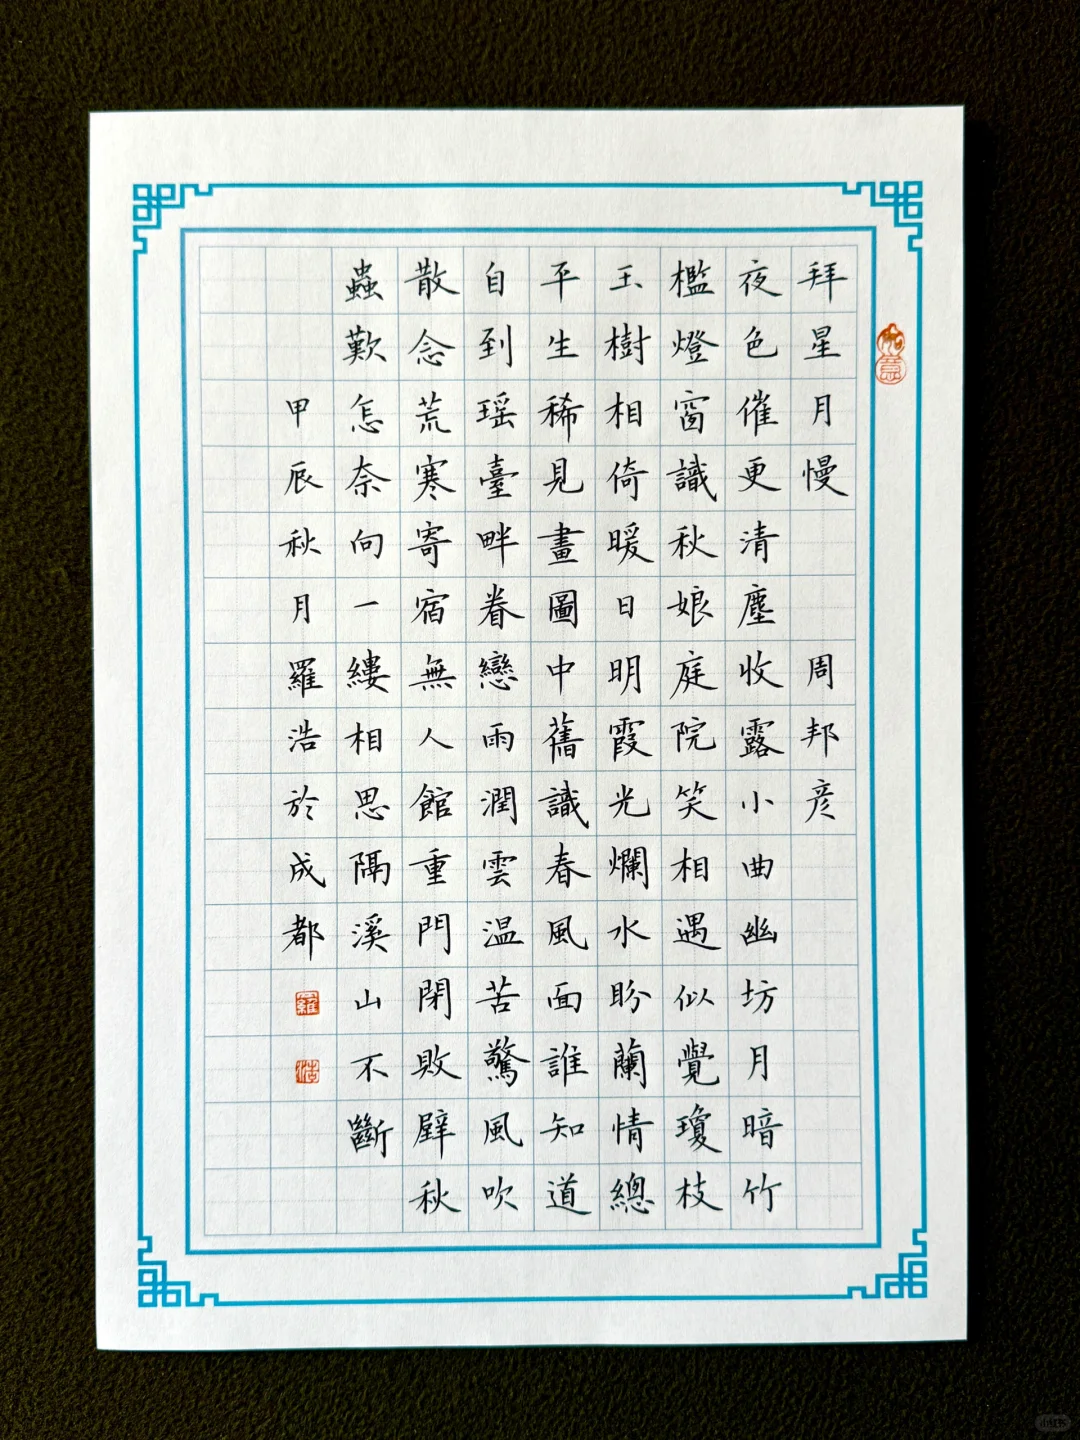 拜星月慢 周邦彦
夜色催更清塵收露小曲幽坊月暗竹
檻燈窗識秋娘庭院笑相遇似覺瓊枝
玉樹相倚暖日明霞光爛水盼蘭情總
平生稀見畫圖中舊識春風面誰知道
自到瑶臺畔眷戀雨潤雲温苦驚風吹
散念荒寒寄宿無人館重門閉敗壁秋
蟲歎怎奈向一縷相思隔溪山不斷
甲辰秋月羅浩於成都
羅
浩
小红书